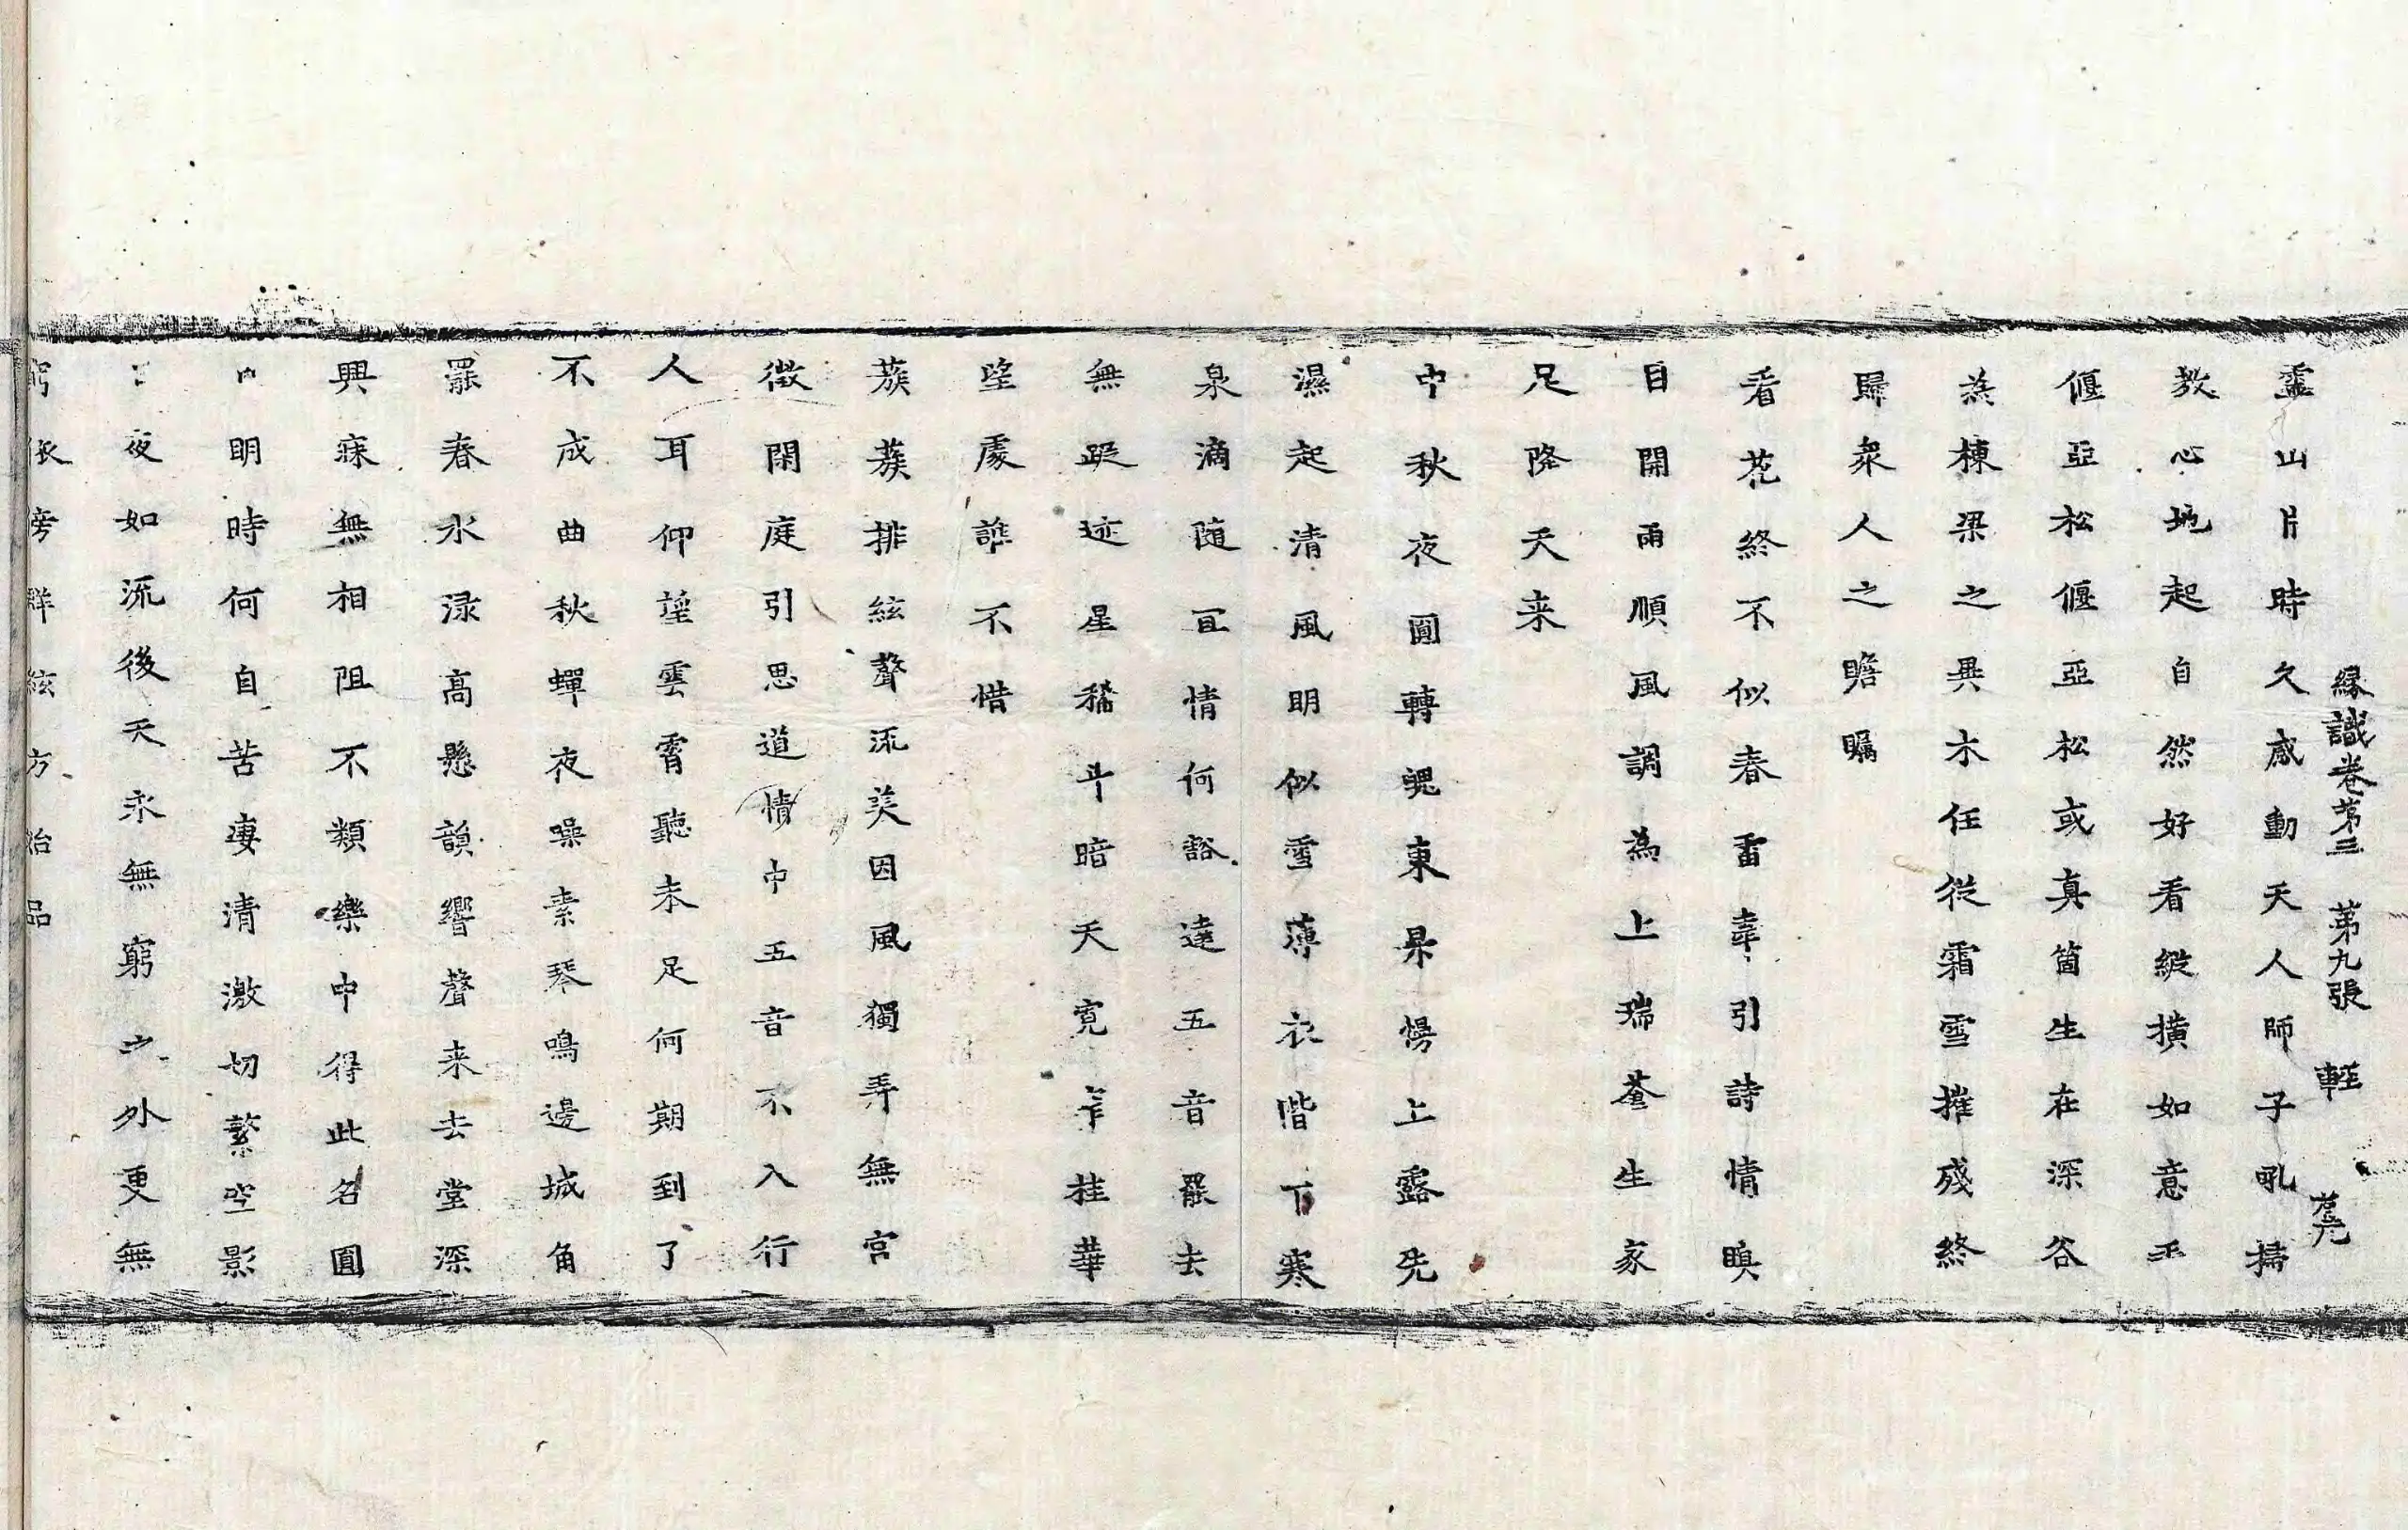 緣識卷第三 第九張 輕
靈山片時久感動天人師子吼掃
教心地起自然好看縱橫如意玉
偃亞松偃亞松或真箇生在深谷
為棟梁之異木任從霜雪摧殘終
歸衆人之瞻矚
看花終不似春雷牽引詩情嗅
目開雨順風調為上瑞蒼生家
足降天来
中秋夜圓轉魄東杲慢上露洗
濕起清風明似雪薄衣階下寒
泉滴随宜情何豁達五音罷去
無蹤迹星稀斗暗天寬乍桂華
望處誰不惜
蔟蔟排絃聲流美因風獨弄無宮
徵閑庭引思道情中五音不入行
人耳仰望雲霄聽未足何期到了
不成曲秋蟬夜噪素琴鳴邊城角
罷春水渌高懸韻響聲来去堂深
興寐無相阻不類樂中得此名圓
明時何自苦凄清激切繁空影
夜如流後天永無窮之外更無
依旁群絃方治品